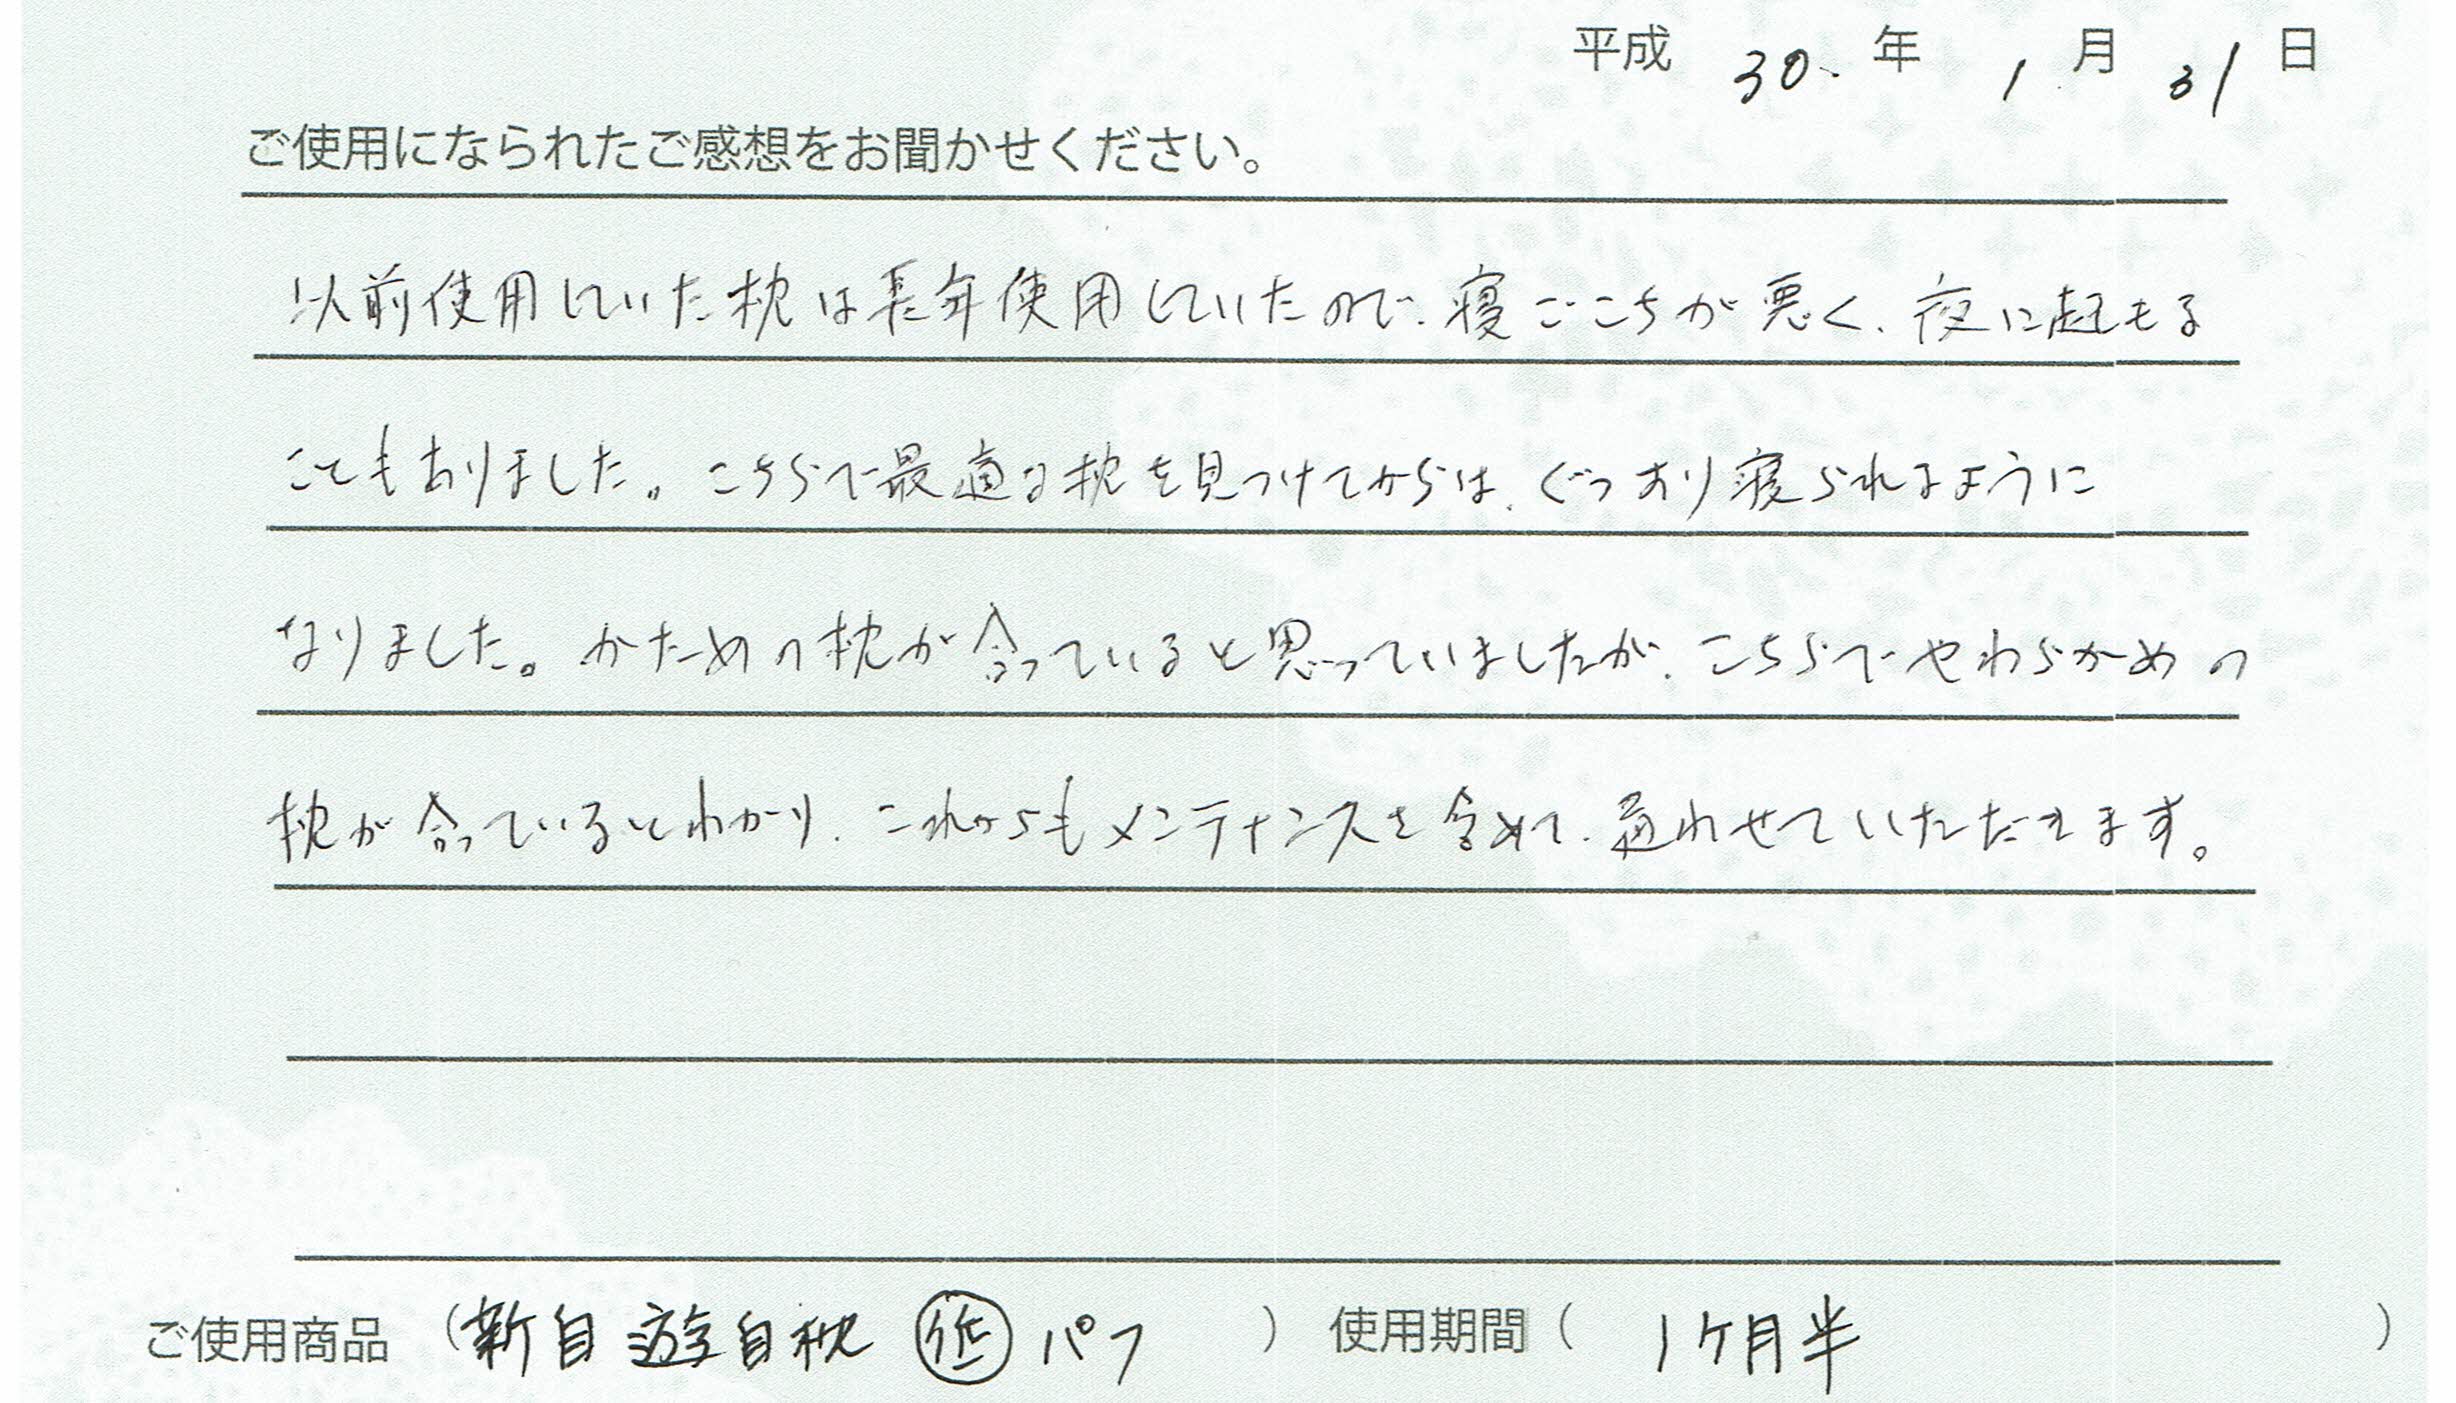 平成 30. 年 1 月 31 日
ご使用になられたご感想をお聞かせください。
以前使用していた枕は長年使用していたので、寝ごこちが悪く、夜に起きる
こともありました。こちらで最適な枕を見つけてからは、ぐっすり寝られるように
なりました。かための枕が合っていると思っていましたが、こちらでやわらかめの
枕が合っているとわかり、これからもメンテナンスを含めて、通わせていただきます。
ご使用商品 (新自遊自枕 低 パフ ) 使用期間 ( 1ヶ月半 )